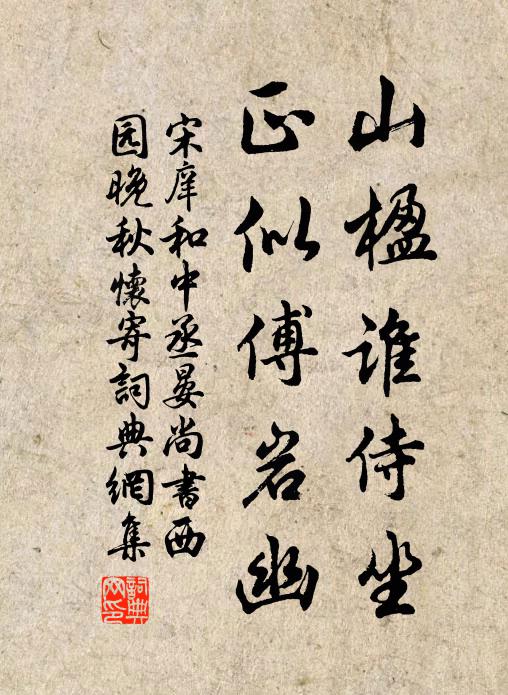 山楹谁侍坐
正似傅岩幽
宋庠和中丞晏尚書西
园晚秋懷寄詞典網集
詞典网印